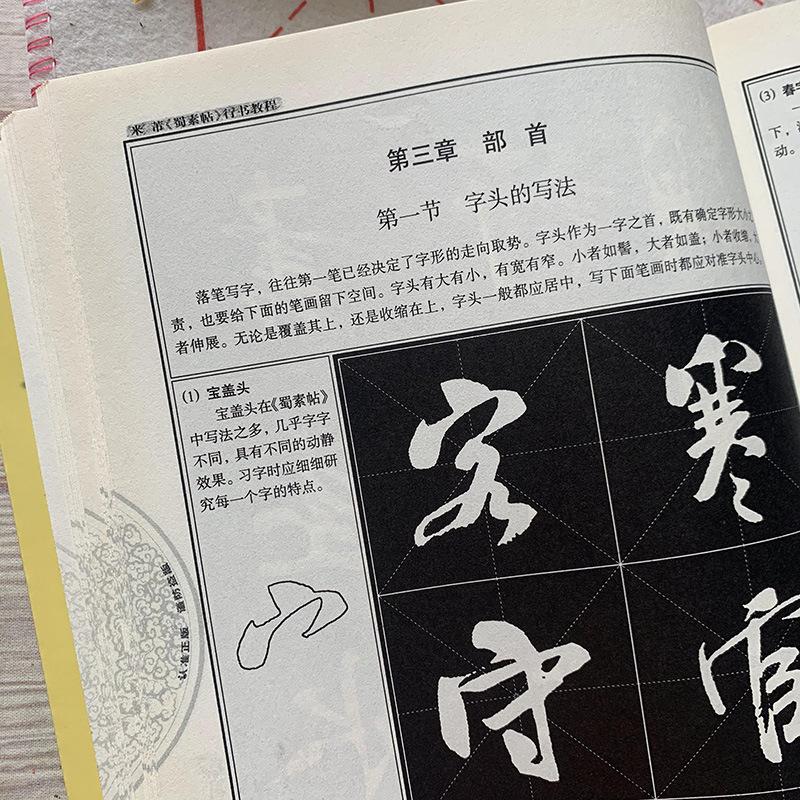 米芾《蜀素帖》行书教程
第三章 部首
第一节 字头的写法
落笔写字，往往第一笔已经决定了字形的走向取势。字头作为一字之首，既有确定字形大小之
责，也要给下面的笔画留下空间。字头有大有小，有宽有窄。小者如髻，大者如盖；小者收缩，大
者伸展。无论是覆盖其上，还是收缩在上，字头一般都应居中，写下面笔画时都应对准字头中心。
(1) 宝盖头
宝盖头在《蜀素帖》
中写法之多，几乎字字
不同，具有不同的动静
效果。习字时应细细研
究每一个字的特点。
宀
客 寒
守 宦
认准正版 谨防盗版
(3) 春字
一
下，
动。